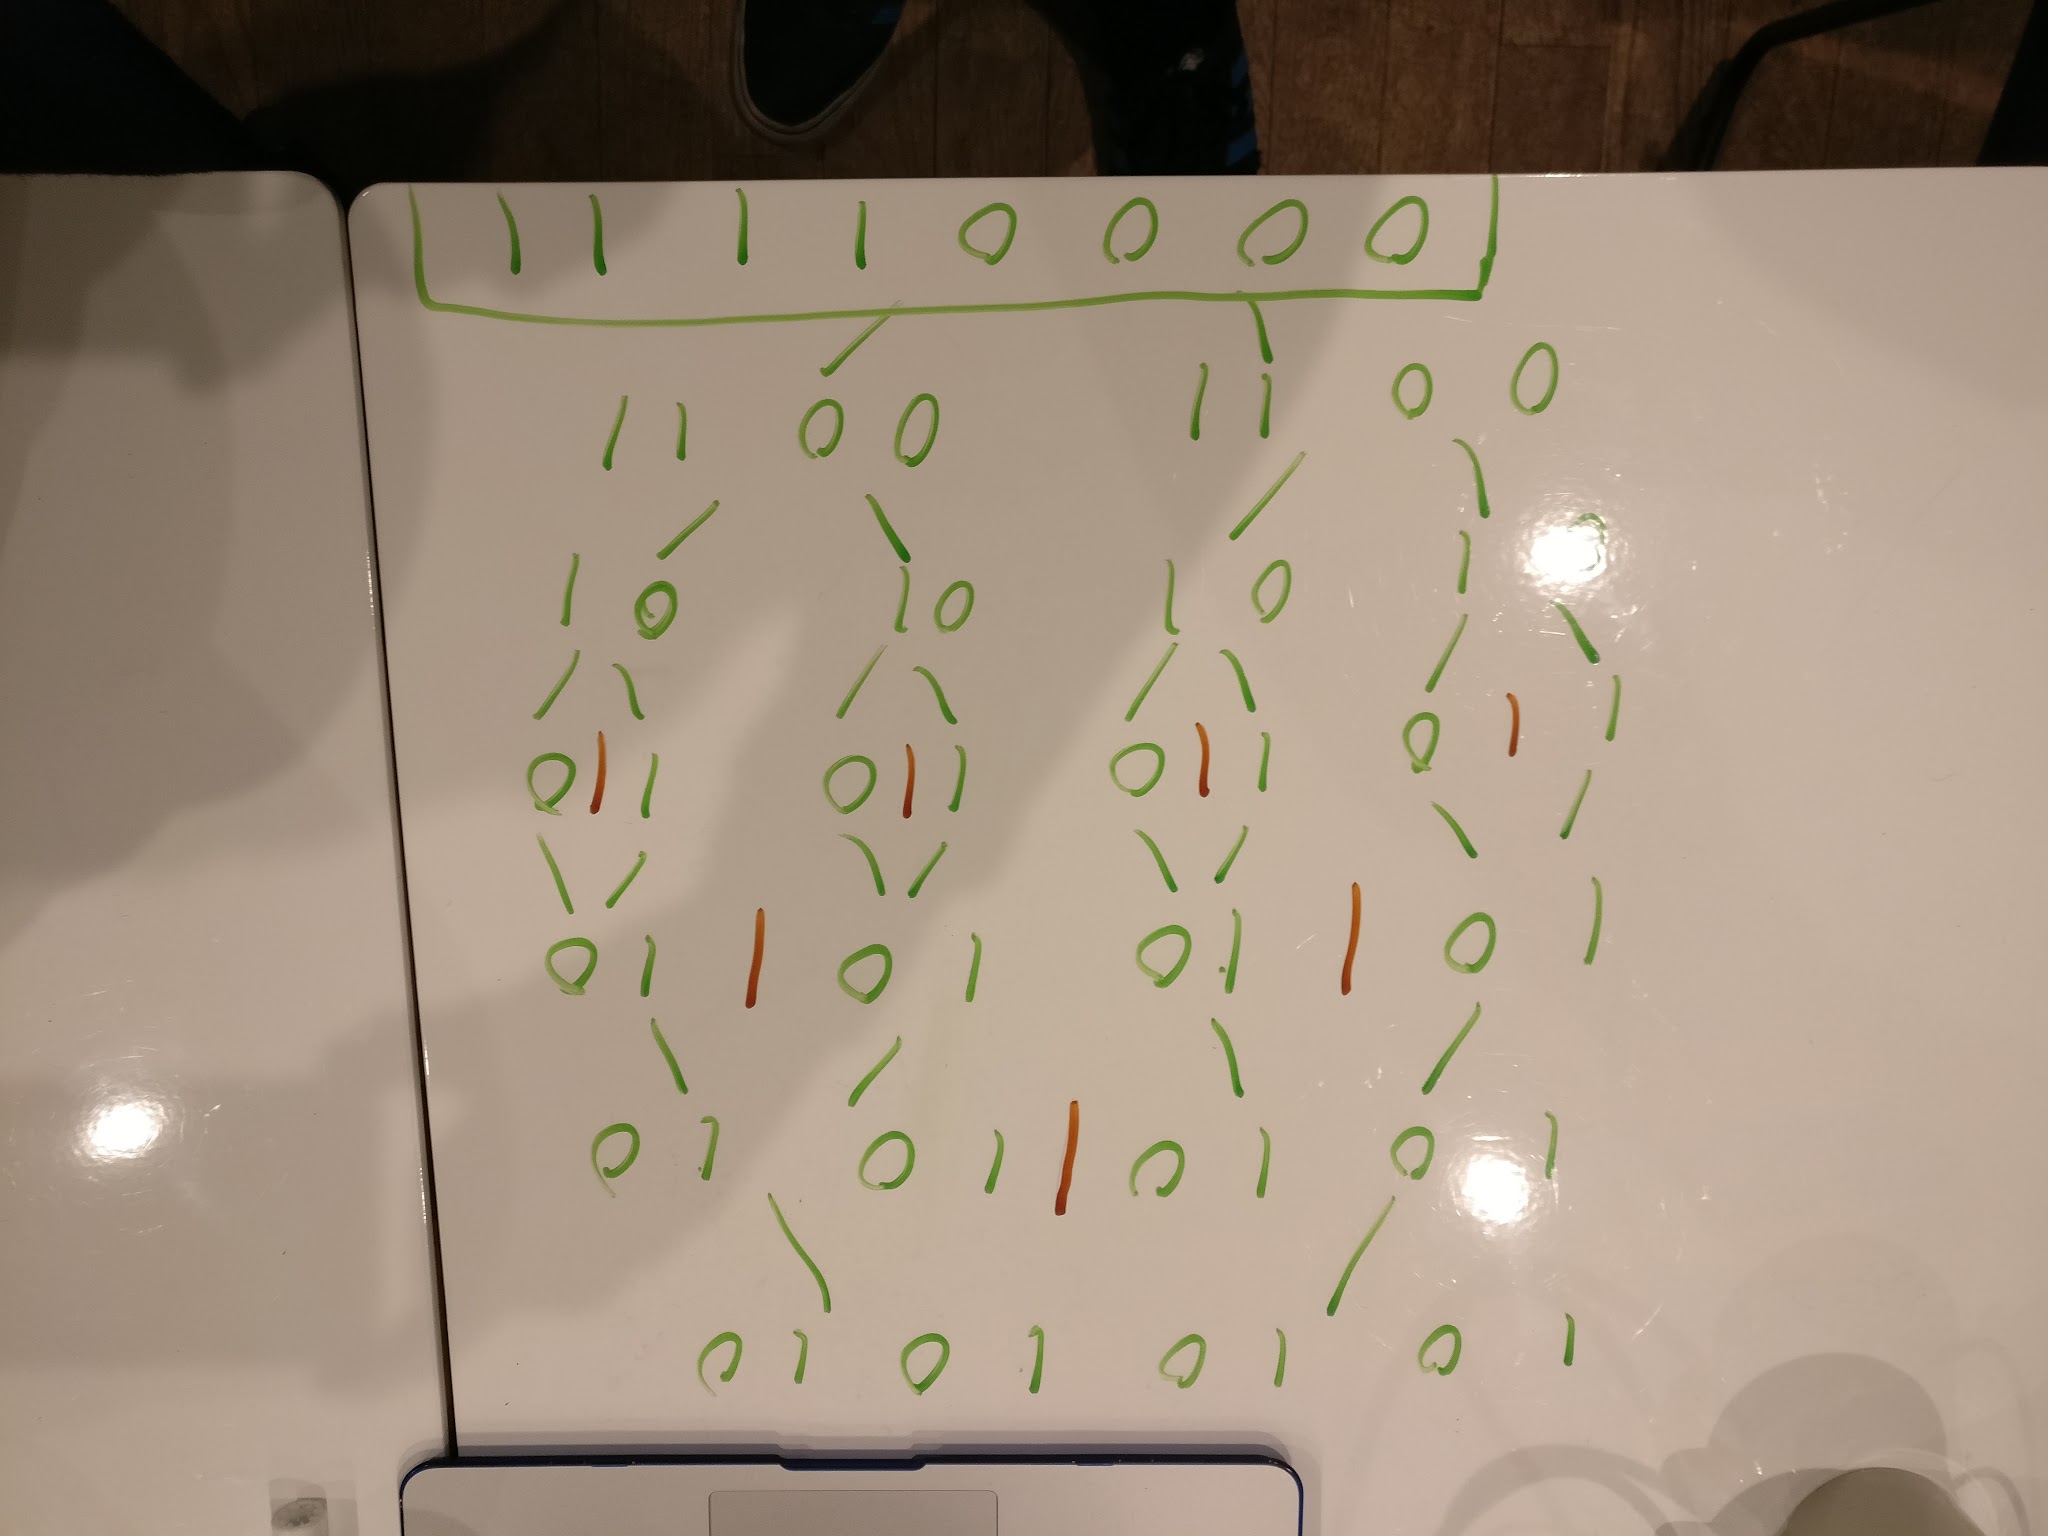 1 0 1 0 1 0 1 0
1 0 1 0 | 1 0 1 0
1 0 | 1 0 1 0 | 1 0
1 | 0 1 | 0 1 | 0 1 | 0
0 1 0 1 0 1 0 1
0 0 1 1 0 0 1 1
0 0 0 0 1 1 1 1